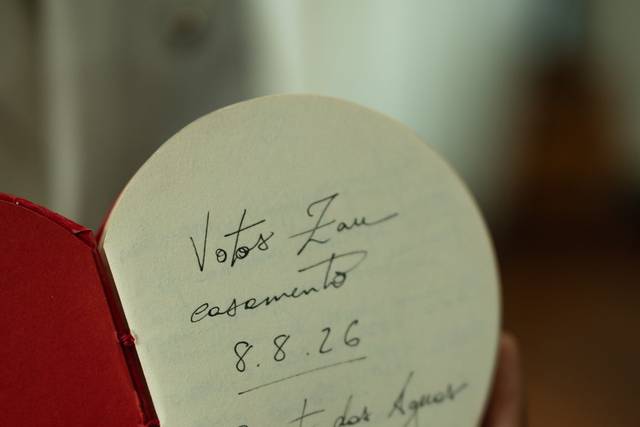 Votos Zau
casamento
8.8.26
dos Aguas